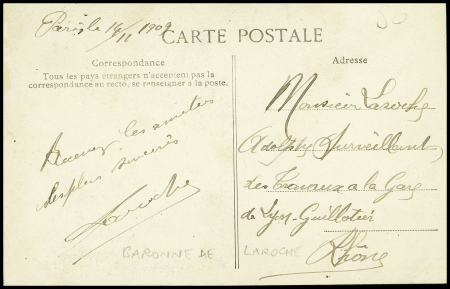 Paris, le 14/11 1909
CARTE POSTALE
Correspondance
Tous les pays étrangers n'acceptent pas la
correspondance au recto, se renseigner à la poste.
Recevez les amitiés
des plus sincères
Laroche
Adresse
Monsieur Laroche
Adolphe Surveillant
des Travaux a la Gare
de Lyon-Guillotier
Rhône
BARONNE DE LAROCHE